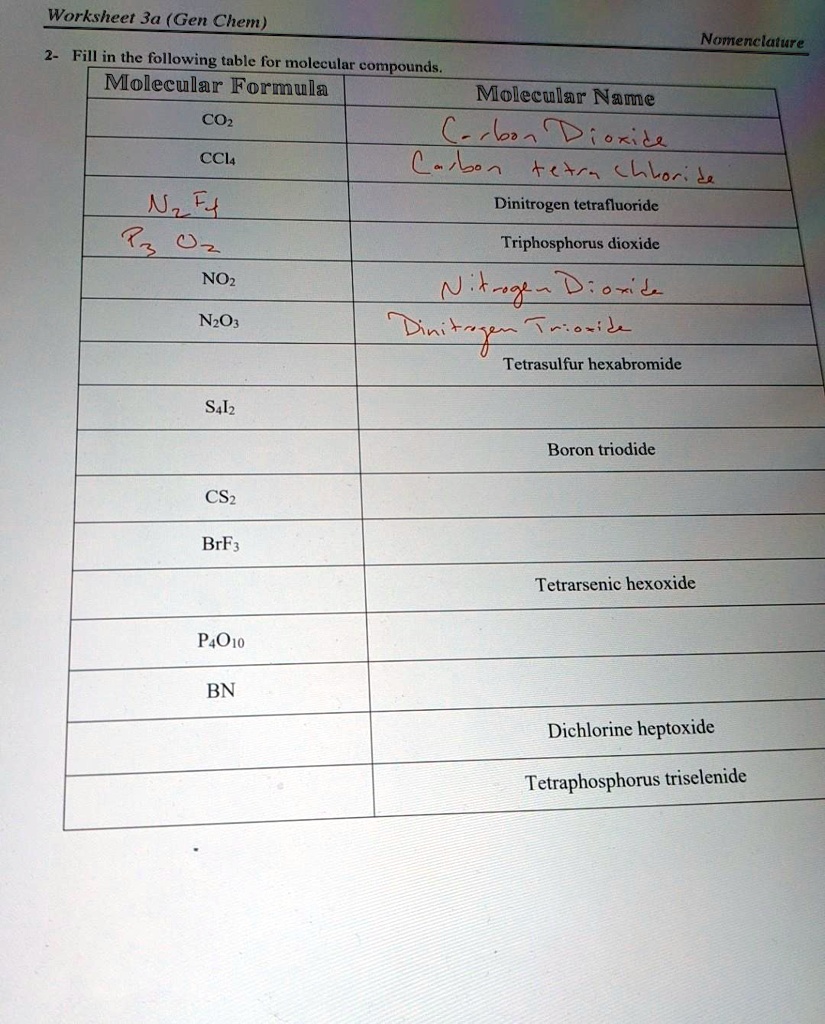 Worksheet 3a (Gen Chem)
Nomenclature
2- Fill in the following table for molecular compounds.
Molecular Formula Molecular Name
CO₂ Carbon Dioxide
CCl₄ Carbon tetra chloride
N₂F₄ Dinitrogen tetrafluoride
P₃ O₂ Triphosphorus dioxide
NO₂ Nitrogen Dioxide
N₂O₃ Dinitrogen Trioxide
Tetrasulfur hexabromide
S₄I₂
Boron triodide
CS₂
BrF₃
Tetrarsenic hexoxide
P₄O₁₀
BN
Dichlorine heptoxide
Tetraphosphorus triselenide